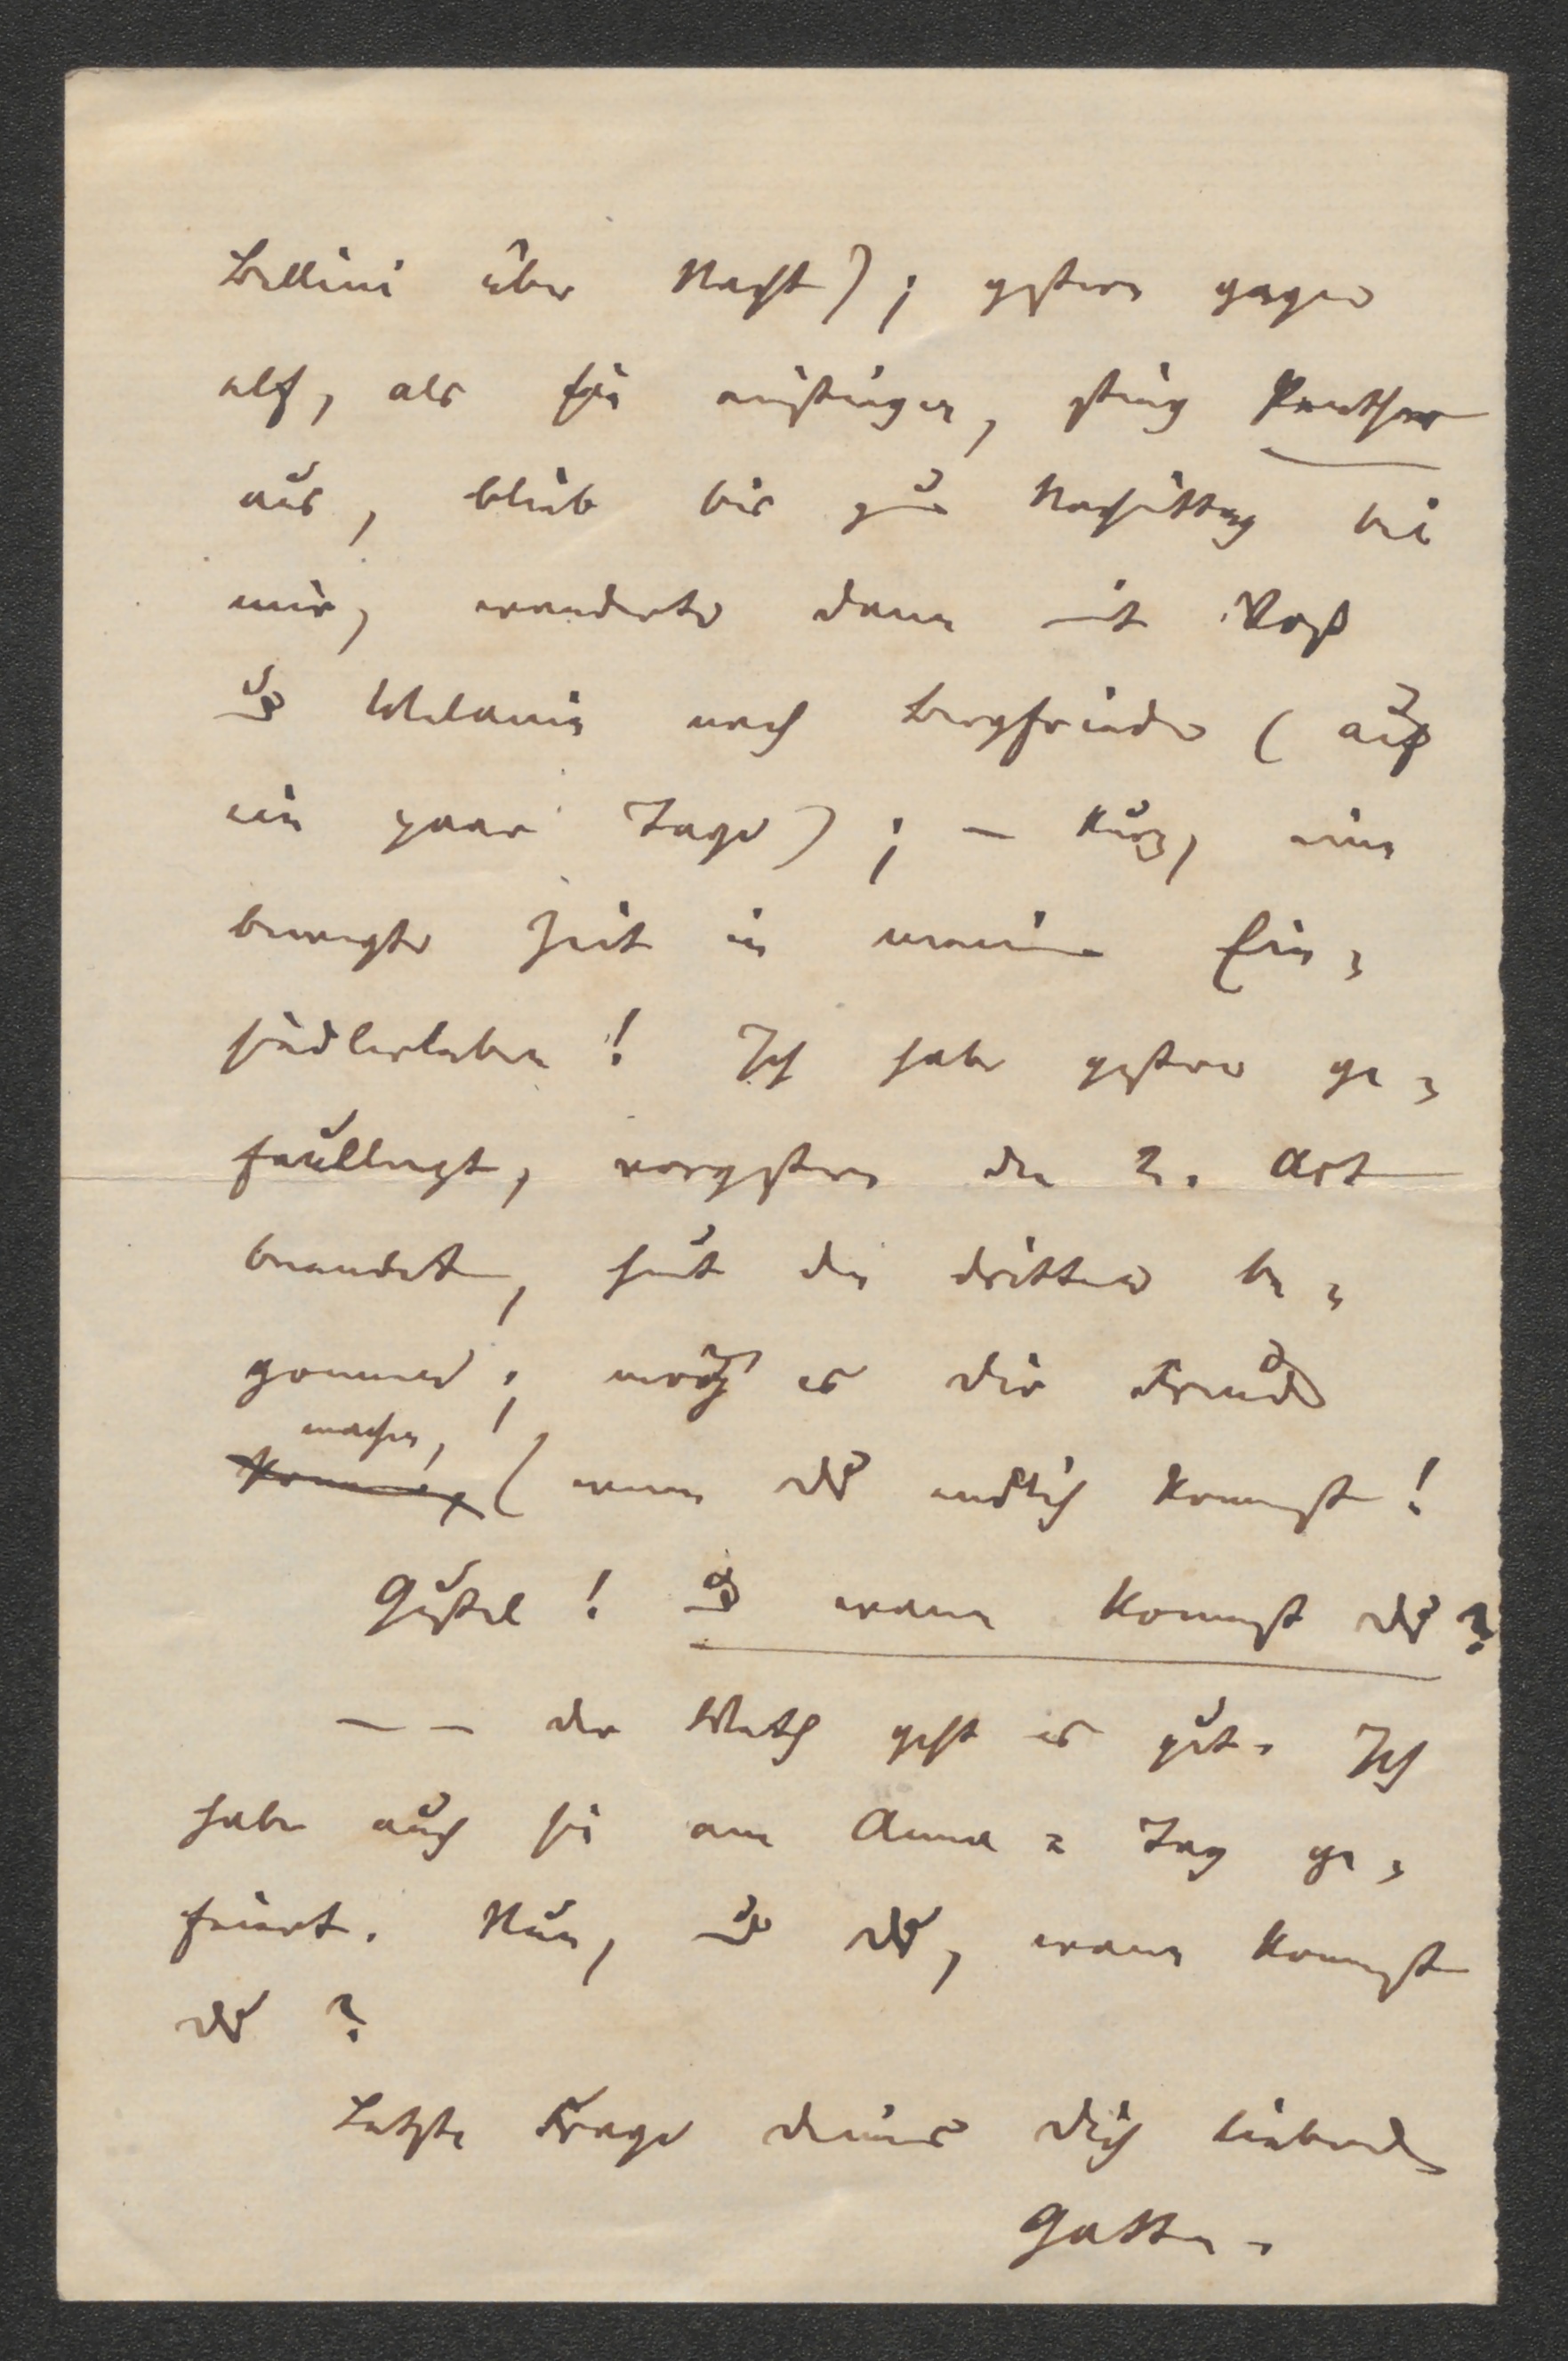 Bellini über Nacht); gestern gegen
elf, als sie einstiegen, stieg Panther
aus, blieb bis zum Nachmittag bei
mir, wanderte dann mit Voß
u Melanie nach Bergfriede (auf
ein paar Tage); – kurz, eine
bewegte Zeit in meinem Ein=
siedlerleben! Ich habe gestern ge=
faullenzt, vorgestern den 2. Act
beendet, heut den dritten be=
gonnen; mög es dir Freude
machen,
(wenn du endlich kommst!
Gustel! u wann kommst du?
– – der Math geht es gut. Ich
habe auch sie am Anna=Tag ge=
feiert. Nun, u du, wann kommst
du?
Letzte Frage deines dich liebenden
Gatten.